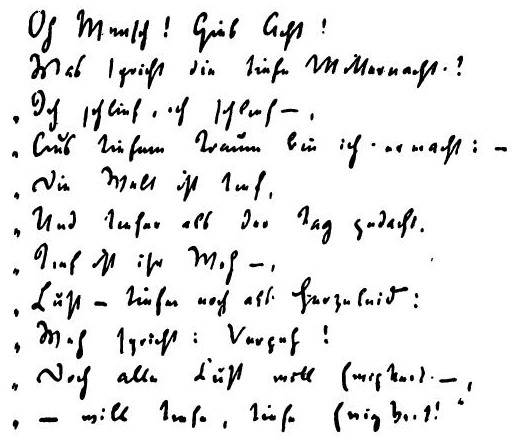 Oh Mensch! Gieb Acht!
Was spricht die tiefe Mitternacht?
„Ich schlief, ich schlief —,
„Aus tiefem Traum bin ich erwacht: —
„Die Welt ist tief,
„Und tiefer als der Tag gedacht.
„Tief ist ihr Weh —,
„Lust — tiefer noch als Herzeleid:
„Weh spricht: Vergeh!
„Doch alle Lust will Ewigkeit —,
„— will tiefe, tiefe Ewigkeit!“